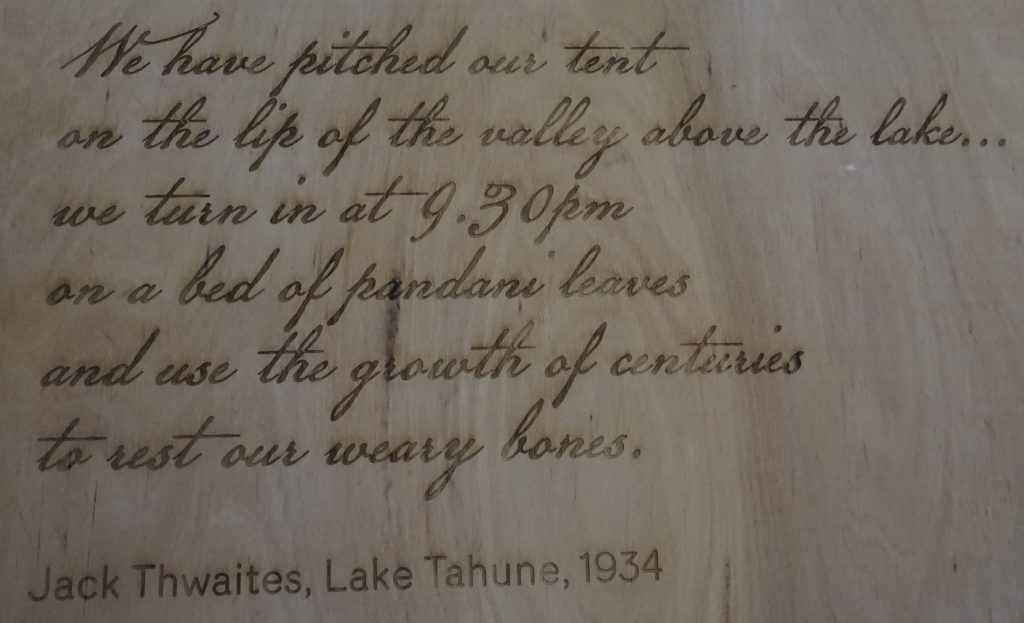 We have pitched our tent
on the lip of the valley above the lake...
we turn in at 9.30pm
on a bed of pandani leaves
and use the growth of centuries
to rest our weary bones.
Jack Thwaites, Lake Tahune, 1934